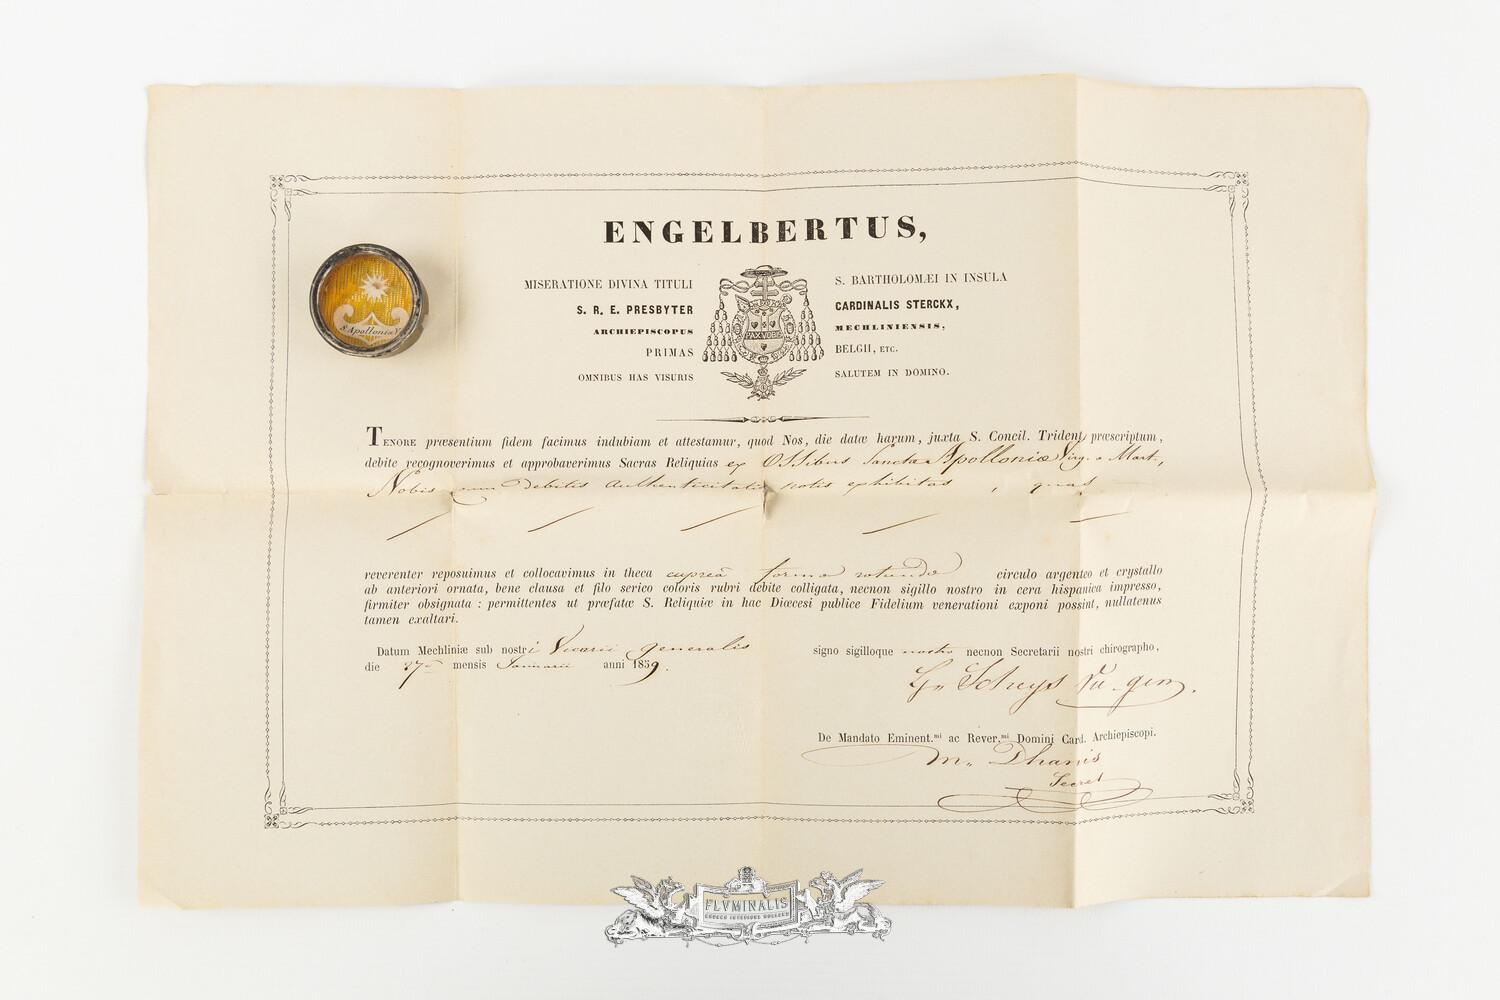 ENGELBERTUS,
MISERATIONE DIVINA TITULI S. BARTHOLOMÆI IN INSULA
S. R. E. PRESBYTER CARDINALIS STERCKX,
ARCHIEPISCOPUS MECHLINIENSIS,
PRIMAS BELGII, ETC.
OMNIBUS HAS VISURIS SALUTEM IN DOMINO.
PAX VOBIS
S. Apolloniæ V
TENORE præsentium fidem facimus indubiam et attestamur, quod Nos, die datæ harum, juxta S. Concil. Trident præscriptum,
debite recognoverimus et approbaverimus Sacras Reliquias ex Ossibus Sanctæ Apolloniæ Virg. & Mart,
Nobis cum debitis authenticitatis notis exhibitas , quas
reverenter reposuimus et collocavimus in theca cupreâ formæ rotundæ circulo argenteo et crystallo
ab anteriori ornata, bene clausa et filo serico coloris rubri debite colligata, necnon sigillo nostro in cera hispanica impresso,
firmiter obsignata : permittentes ut præfatæ S. Reliquiæ in hac Diœcesi publice Fidelium venerationi exponi possint, nullatenus
tamen exaltari.
Datum Mechliniæ sub nostri Vicarii generalis signo sigilloque nostro necnon Secretarii nostri chirographo,
die 27â mensis Januarii anni 1859.
Scheys Vic. gen.
De Mandato Eminent.mi ac Rever.mi Domini Card. Archiepiscopi.
M. Dhanis
Secret
FLVMINALIS